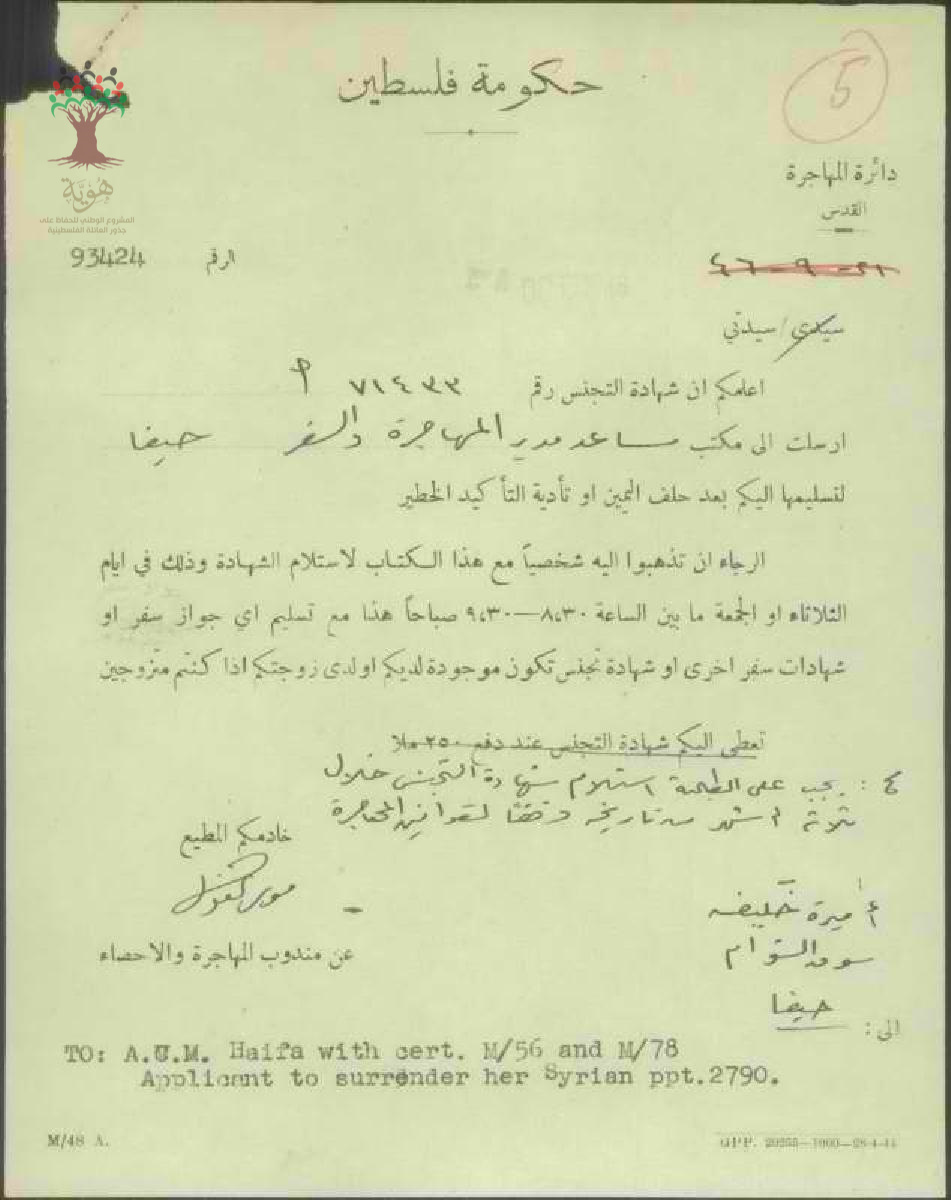 حكومة فلسطين
5
دائرة المهاجرة
القدس
هُوِيَّة
المشروع الوطني للحفاظ على
جذور العائلة الفلسطينية
٢١-٩-٤٦
الرقم 93424
سيدي/سيدتي
اعلمكم ان شهادة التجنس رقم ٧١٤٣٣
ارسلت الى مكتب مساعد مدير المهاجرة والسفر حيفا
لتسليمها اليكم بعد حلف اليمين او تأدية التأكيد الخطير
الرجاء ان تذهبوا اليه شخصياً مع هذا الكتاب لاستلام الشهادة وذلك في ايام
الثلاثاء او الجمعة ما بين الساعة ٨،٣٠—٩،٣٠ صباحاً هذا مع تسليم اي جواز سفر او
شهادات سفر اخرى او شهادة تجنس تكون موجودة لديكم او لدى زوجتكم اذا كنتم متزوجين
تعطى اليكم شهادة التجنس عند دفع ٢٥٠ ملا
ح : يجب على الطالبة استلام شهادة التجنس خلال
ثلاثة اشهر من تاريخه وفقا لقوانين المهاجرة
خادمكم المطيع
عن مندوب المهاجرة والاحصاء
أميرة خليفه
سوق الشوام
حيفا
الى:
TO: A.U.M. Haifa with cert. M/56 and M/78
Applicant to surrender her Syrian ppt.2790.
M/48 A.
GPP. 20255—1000—28-4-44